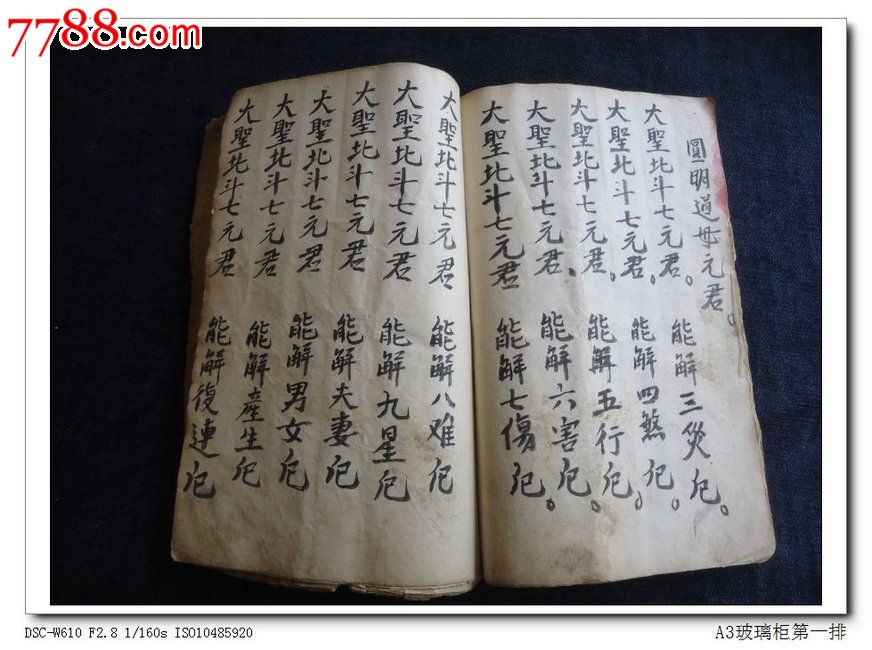 7788.com
圓明道母元君。
大聖北斗七元君。能解三災厄。
大聖北斗七元君。能解四煞厄。
大聖北斗七元君。能解五行厄。
大聖北斗七元君。能解六害厄。
大聖北斗七元君 能解七傷厄。
大聖北斗七元君 能解八难厄
大聖北斗七元君 能解九星厄
大聖北斗七元君 能解夫妻厄
大聖北斗七元君 能解男女厄
大聖北斗七元君 能解產生厄
大聖北斗七元君 能解復連厄
DSC-W610 F2.8 1/160s ISO10485920
A3玻璃柜第一排